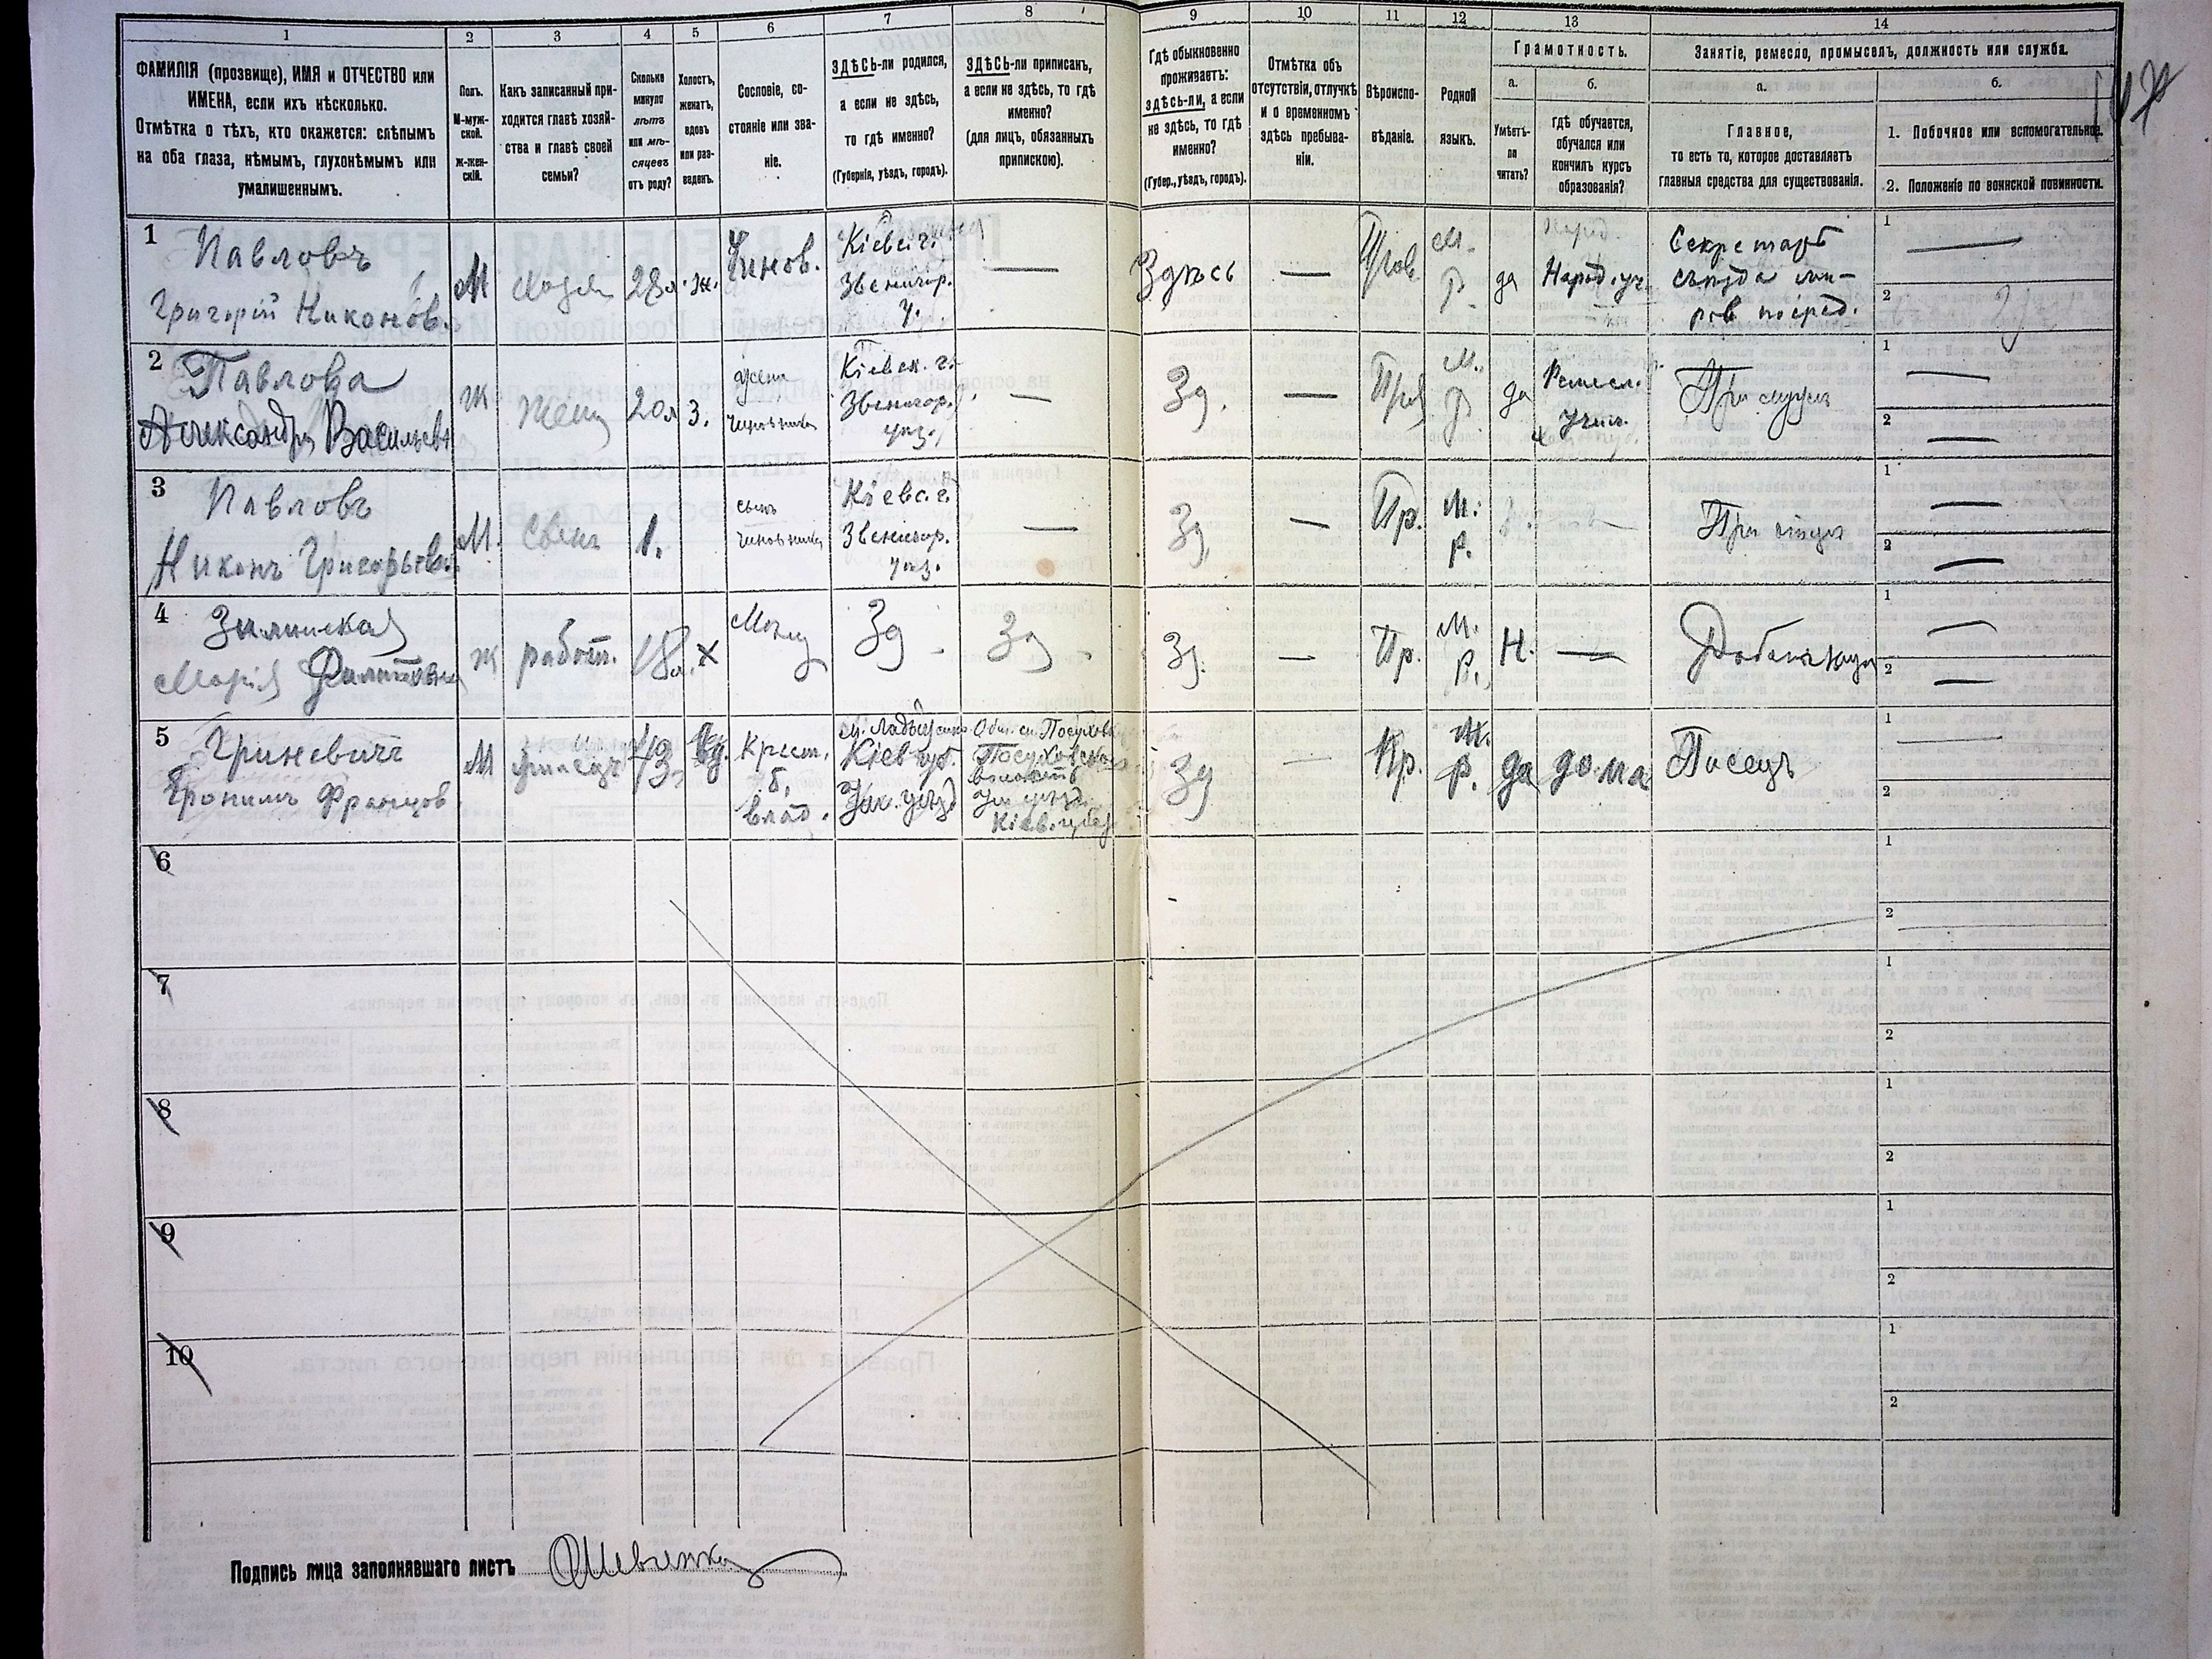 1 2 3 4 5 6 7 8 9 10 11 12 13 14
ФАМИЛІЯ (прозвище), ИМЯ и ОТЧЕСТВО или
ИМЕНА, если ихъ нѣсколько.
Отмѣтка о тѣхъ, кто окажется: слѣпымъ
на оба глаза, нѣмымъ, глухонѣмымъ или
умалишеннымъ.
Полъ.
М-муж-
ской.
Ж-жен-
скій.
Какъ записанный при-
ходится главѣ хозяй-
ства и главѣ своей
семьи?
Сколько
минуло
лѣтъ
или мѣ-
сяцевъ
отъ роду?
Холостъ,
женатъ,
вдовъ
или раз-
веденъ.
Сословіе, со-
стояніе или зва-
ніе.
ЗДѢСЬ-ли родился,
а если не здѣсь,
то гдѣ именно?
(Губернія, уѣздъ, городъ).
ЗДѢСЬ-ли приписанъ,
а если не здѣсь, то гдѣ
именно?
(для лицъ, обязанныхъ
припискою).
Гдѣ обыкновенно
проживаетъ:
здѣсь-ли, а если
не здѣсь, то гдѣ
именно?
(Губер., уѣздъ, городъ).
Отмѣтка объ
отсутствіи, отлучкѣ
и о временномъ
здѣсь пребыва-
ніи.
Вѣроиспо-
вѣданіе.
Родной
языкъ.
Грамотность.
а.
Умѣетъ-
ли
читать?
б.
гдѣ обучается,
обучался или
кончилъ курсъ
образованія?
Занятіе, ремесло, промыселъ, должность или служба.
а.
Главное,
то есть то, которое доставляетъ
главныя средства для существованія.
б.
1. Побочное или вспомогательное.
2. Положеніе по воинской повинности.
1
Павловъ
Григорій Никонов.
М
28л.
ж.
Чинов.
Кіевс. г.
Звенигор.
у.
—
Здѣсь
—
Прав
М.
Р.
да
Народ. уч.
Секретарь
съѣзда ми-
ров. посред.
1
—
2
2
Павлова
Александра Васильевн
Ж
Жена
20л
З.
жена
чиновника
Кіевск. г.
Звенигор.
уѣз.
—
Зд.
—
Прав
М.
Р.
да
Ремесл.
учил.
При мужѣ
1
—
2
—
3
Павловъ
Никонъ Григорьев.
М.
Сынъ
1.
сынъ
чиновника
Кіевс. г.
Звенигор.
уѣз.
—
Зд.
—
Пр.
М.
Р.
При отцѣ
1
—
2
—
4
Марія
Ж
работ.
18л.
Х
Зд
Зд
Зд.
—
Пр.
М.
Р.
Н.
—
1
—
2
—
5
Гриневичъ
Іеронимъ Францов
М
73
Вд.
Крест.
б.
влад.
Кіев. губ.
Ум. уѣзд
Посуховской
волости
Ум. уѣзд.
Кіев. губер
Зд
—
Пр.
М.
Р.
да
дома
1
—
2
6
1
2
7
1
2
8
1
2
9
1
2
10
1
2
Подпись лица заполнявшаго листъ